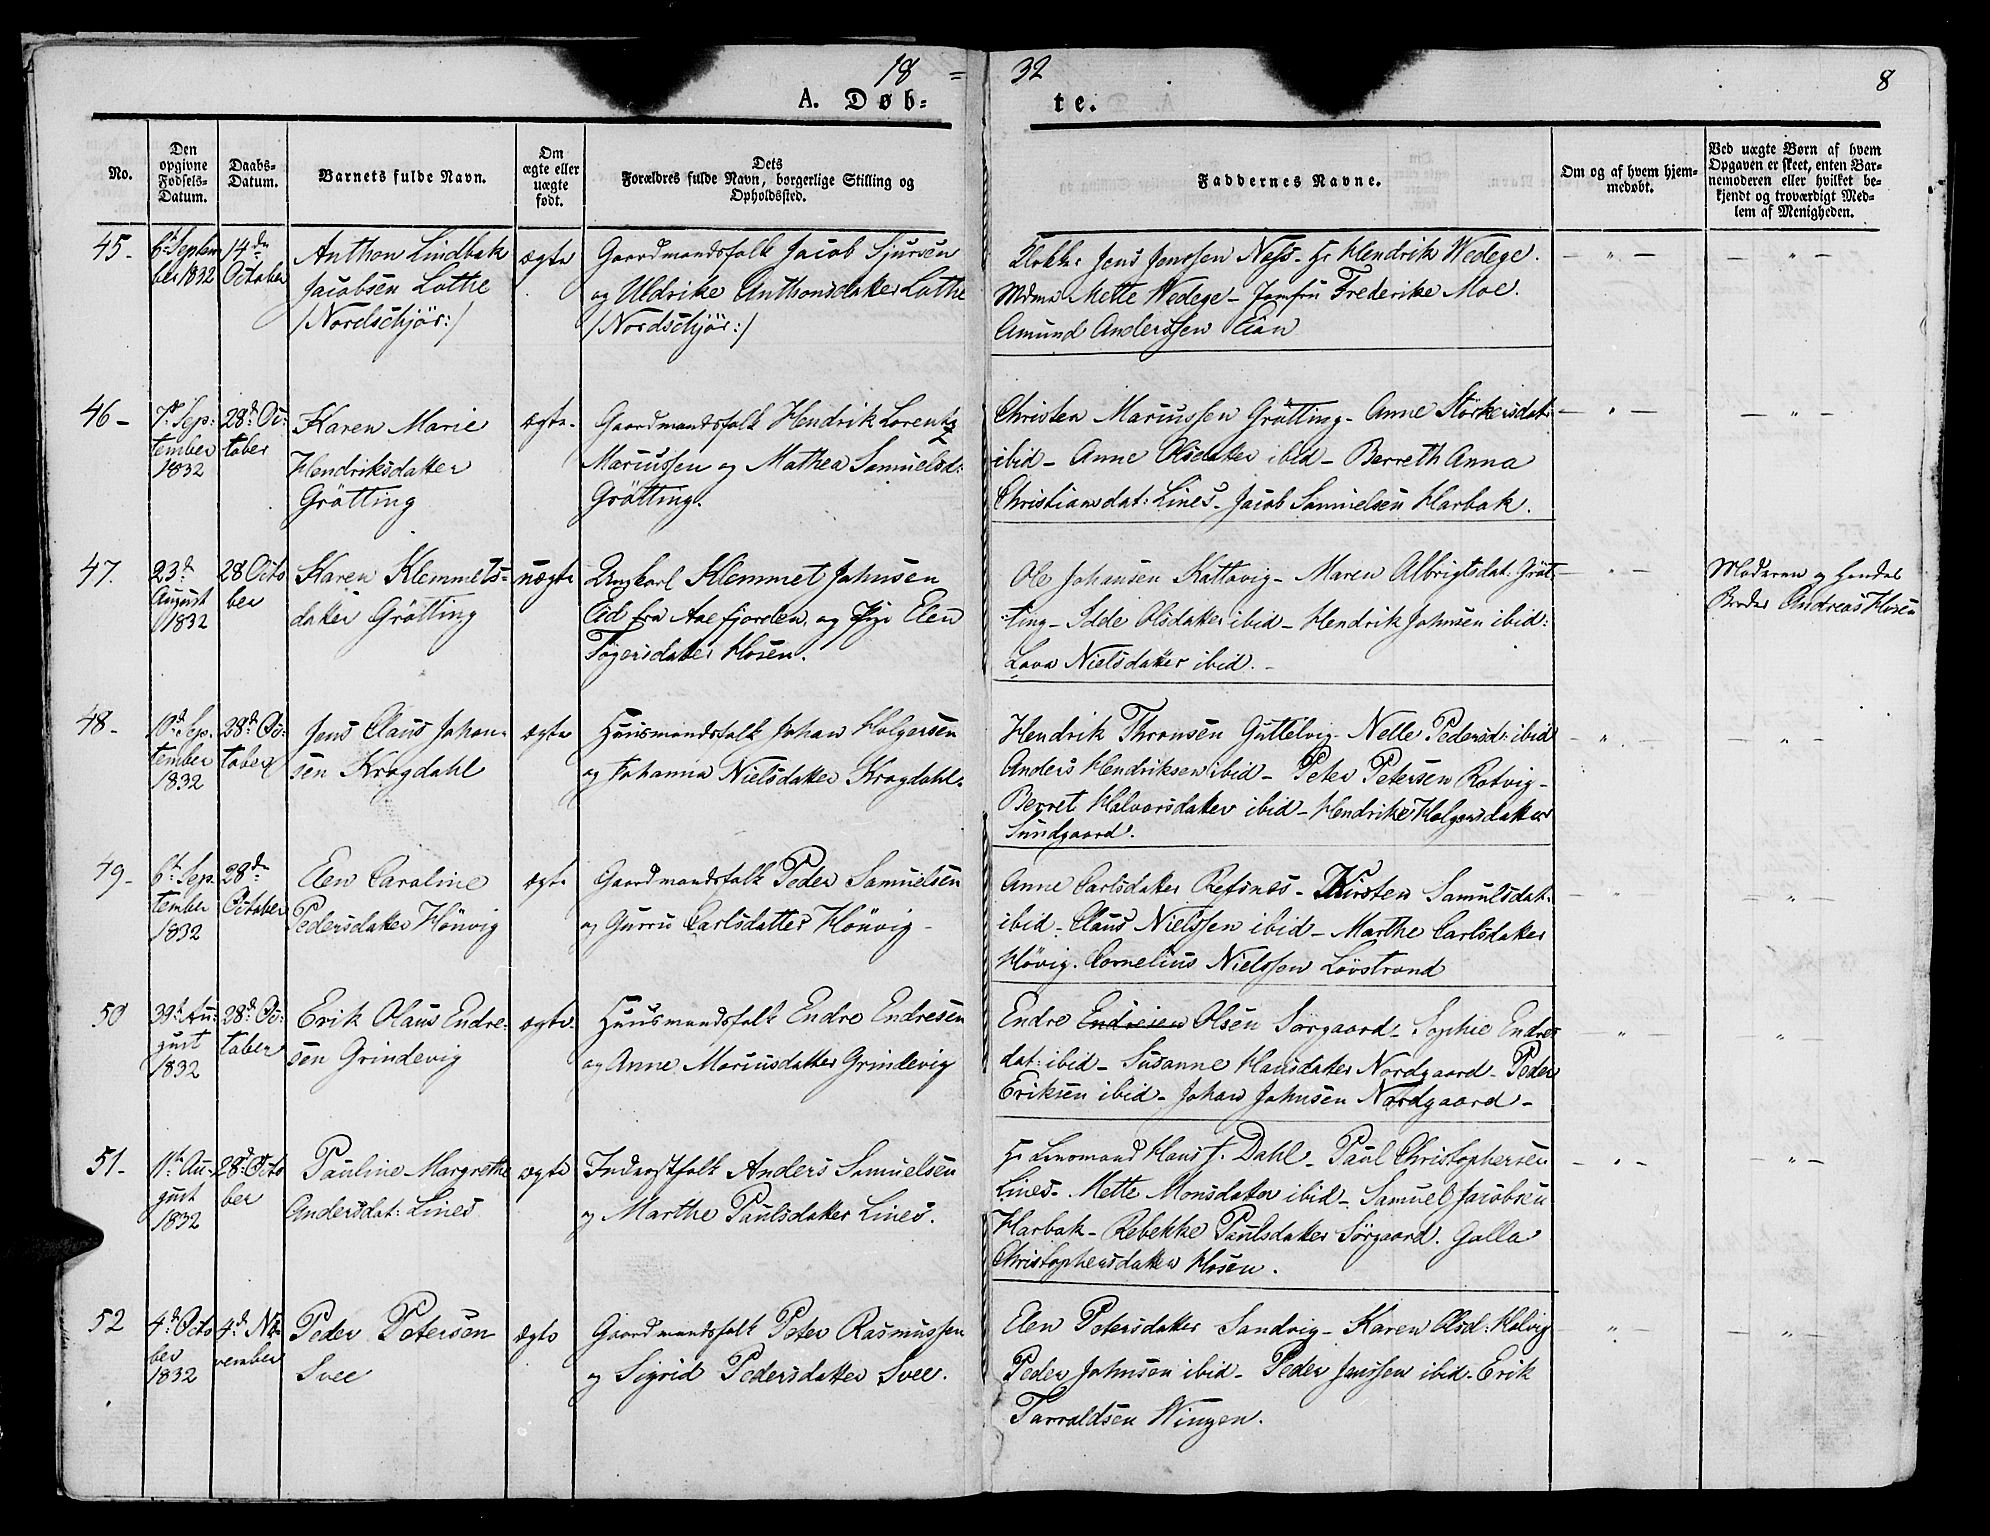 18 = 32
8
A. Døb-
te.
No.
Den opgivne Fødsels-Datum.
Daabs-Datum.
Barnets fulde Navn.
Om ægte eller uægte født.
Dets Forældres fulde Navn, borgerlige Stilling og Opholdssted.
Faddernes Navne.
Om og af hvem hjem-medøbt.
Ved uægte Børn af hvem Opgaven er skeet, enten Bar-nemoderen eller hvilket be-kjendt og troværdigt Med-lem af Menigheden.
45-
6t Septem
ber 1832
14de
October
Anthon Lindbak
Jacobsen Lothe
/Nordschjör:/
ægte
Gaardmandsfolk Jacob Sjursen
og Uldrike Anthonsdatter Lothe
/Nordschjör:/
Klokker Jens Jenssen Næss- Hr Hendrik Wedege.
Mdme Mette Wedege- Jomfru Frederike Moe.
Amund Anderssen Eian
46-
7d Sep:
tember
1832
28d Oc-
tober
Karen Marie
Hendriksdatter
Grötting
ægte-
Gaardmandsfolk Hendrik Lorentz
Mariussen og Mathea Samuelsd:
Grötting.
Christen Mariussen Grötting- Anne Störkersdat:
ibid- Anne Olsdatter ibid- Berreth Anna
Christiansdat: Lines- Jacob Samuelsen Harbak.
47.
23d
August
1832
28 Octo
ber
Karen Klemmets-
datter Grötting
uægte
Ungkarl Klemmet Johnsen
fra Aaefjorden og Pige Elen
Tögersdatter Hosen.
Ole Johansen Kattavig- Maren Albrigtsdat: Gröt-
ting- Olsdatter ibid- Hendrik Johnsen ibid:
Lava Nielsdatter ibid.-
Moderen og hendes
Broder Andreas Hosen
48-
10d Sep.
tember
1832
28d Oc-
tober
Jens Claus Johan-
sen Kragdahl
ægte
Huusmandsfolk Johan Holgersen
og Johanna Nielsdatter Kragdahl.
Hendrik Thronsen Guttelvig- Nelle Pedersd: ibid
Anders Hendriksen ibid- Peter Petersen Ratvig-
Berret Halvorsdatter ibid- Hendrike Holgersdatter
Sundgaard.
49-
6t Sep-
tember
1832
28d
October
Elen Caroline
Pedersdatter Hönvig
ægte
Gaardmandsfolk Peder Samuelsen
og Gurru Carlsdatter Hönvig-
Anne Carlsdatter Refsnes- Kirsten Samulsdat:
ibid- Claus Nielssen ibid- Marthe Carlsdatter
Hövig. Cornelius Nielssen Lövstrand
50
30t Au-
gust
1832
28d Oc-
tober
Erik Olaus Endre-
sen Grindevig
ægte-
Huusmandsfolk Endre Endresen
og Anne Mariusdatter Grindevig
Endre Olsen Sørgaard- Sophie Endres
dat: ibid- Susanne Hansdatter Nordgaard- Peder
Eriksen ibid- Johan Johnsen Nordgaard-
51-
11t Au-
gust
1832
28d Octo
ber
Pauline Margrethe
Andersdat: Lines
ægte
Inderstfolk Anders Samuelsen
og Marthe Paulsdatter Lines.
Hr Lensmand Hans J. Dahl- Paul Christophersen
Lines- Mette Monsdatter ibid- Samuel Jacobsen
Harbak- Rebekke Paulsdatter Sörgaard. Golla
Christophersdatter Hosen.
52
4d Octo
ber
1832
4d No-
vember
Peder Petersen
Svee
ægte
Gaardmandsfolk Peter Rasmussen
og Sigrid Pedersdatter Svee.
Elen Petersdatter Sandvig- Karen Olsd: Hölvig
Peder Johnsen ibid- Peder Jenssen ibid- Erik
Tarraldsen Wingen.